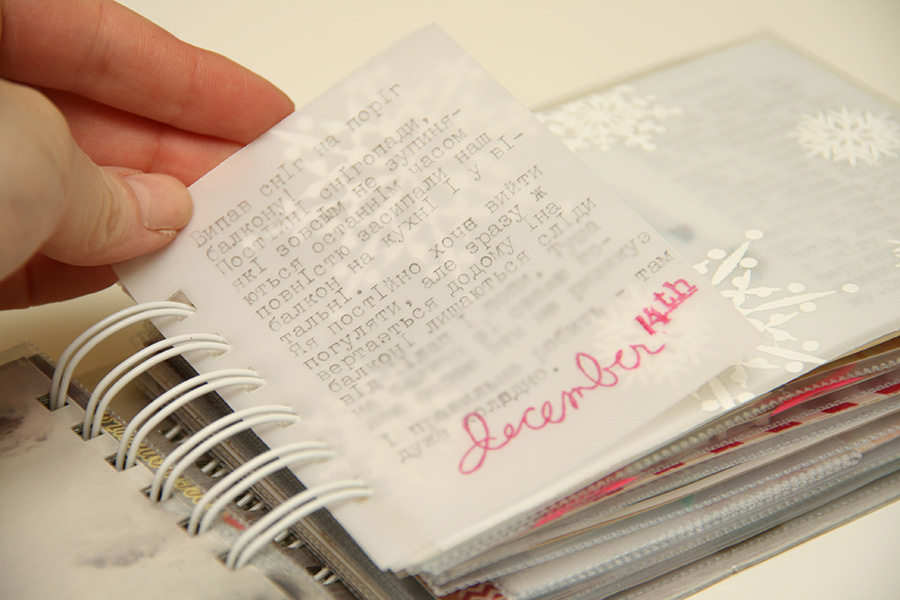 Випав снІг на порІг
балкону!
ПостІйнІ снІгопади,
якІ зовсІм не зупиня-
ються останнІм часом
повнІстю засипали наш
балкон на кухнІ І у вІ-
тальнІ.
Яя постІйно хоче вийти
погуляти, але зразу ж
вертається додому Іна
балконІ лишаються слІди
вІд
там
дуже холодно.
december 14th